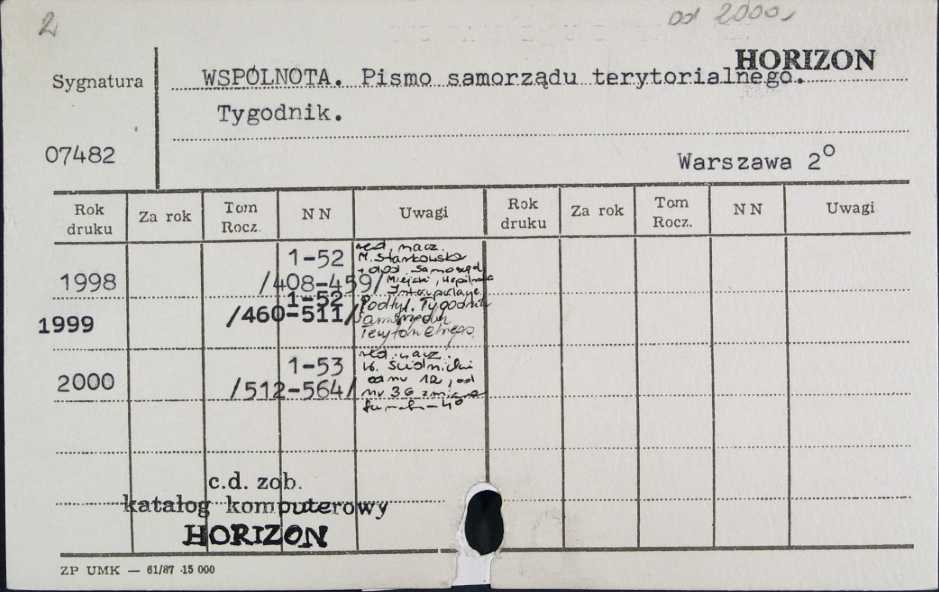 2
od 2000,
HORIZON
Sygnatura
WSPÓLNOTA. Pismo samorządu terytorialnego.
Tygodnik.
07482
Warszawa 2°
Rok druku Za rok Tom Rocz. NN Uwagi Rok druku Za rok Tom Rocz. NN Uwagi
1998 1-52 /408-459/
red. nacz.
M. Stańkowska
+ dod. Samorząd
Miejski, Wspólnota
1999 1-52 /460-511/
Podtyt. Tygodnik
Samorządu
Terytorialnego
2000 1-53 /512-564/
red. nacz.
od nr 12, od
nr 36 zmiana
formatu - 4°
c.d. zob.
katalog komputerowy
HORIZON
ZP UMK — 61/87 -15 000